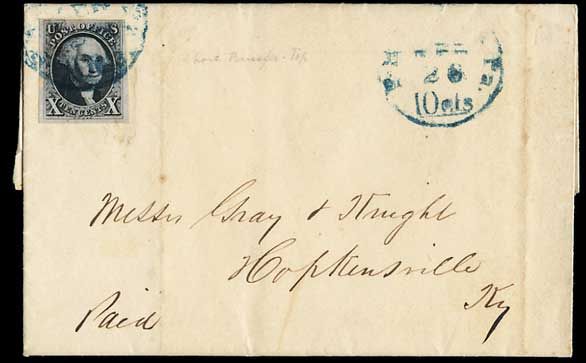 U S
POST OFFICE
X TEN CENTS X
Short Transfer - Top
Pa.
26
10cts
Messrs Gray & Knight
Hopkensville
Ky
Paid